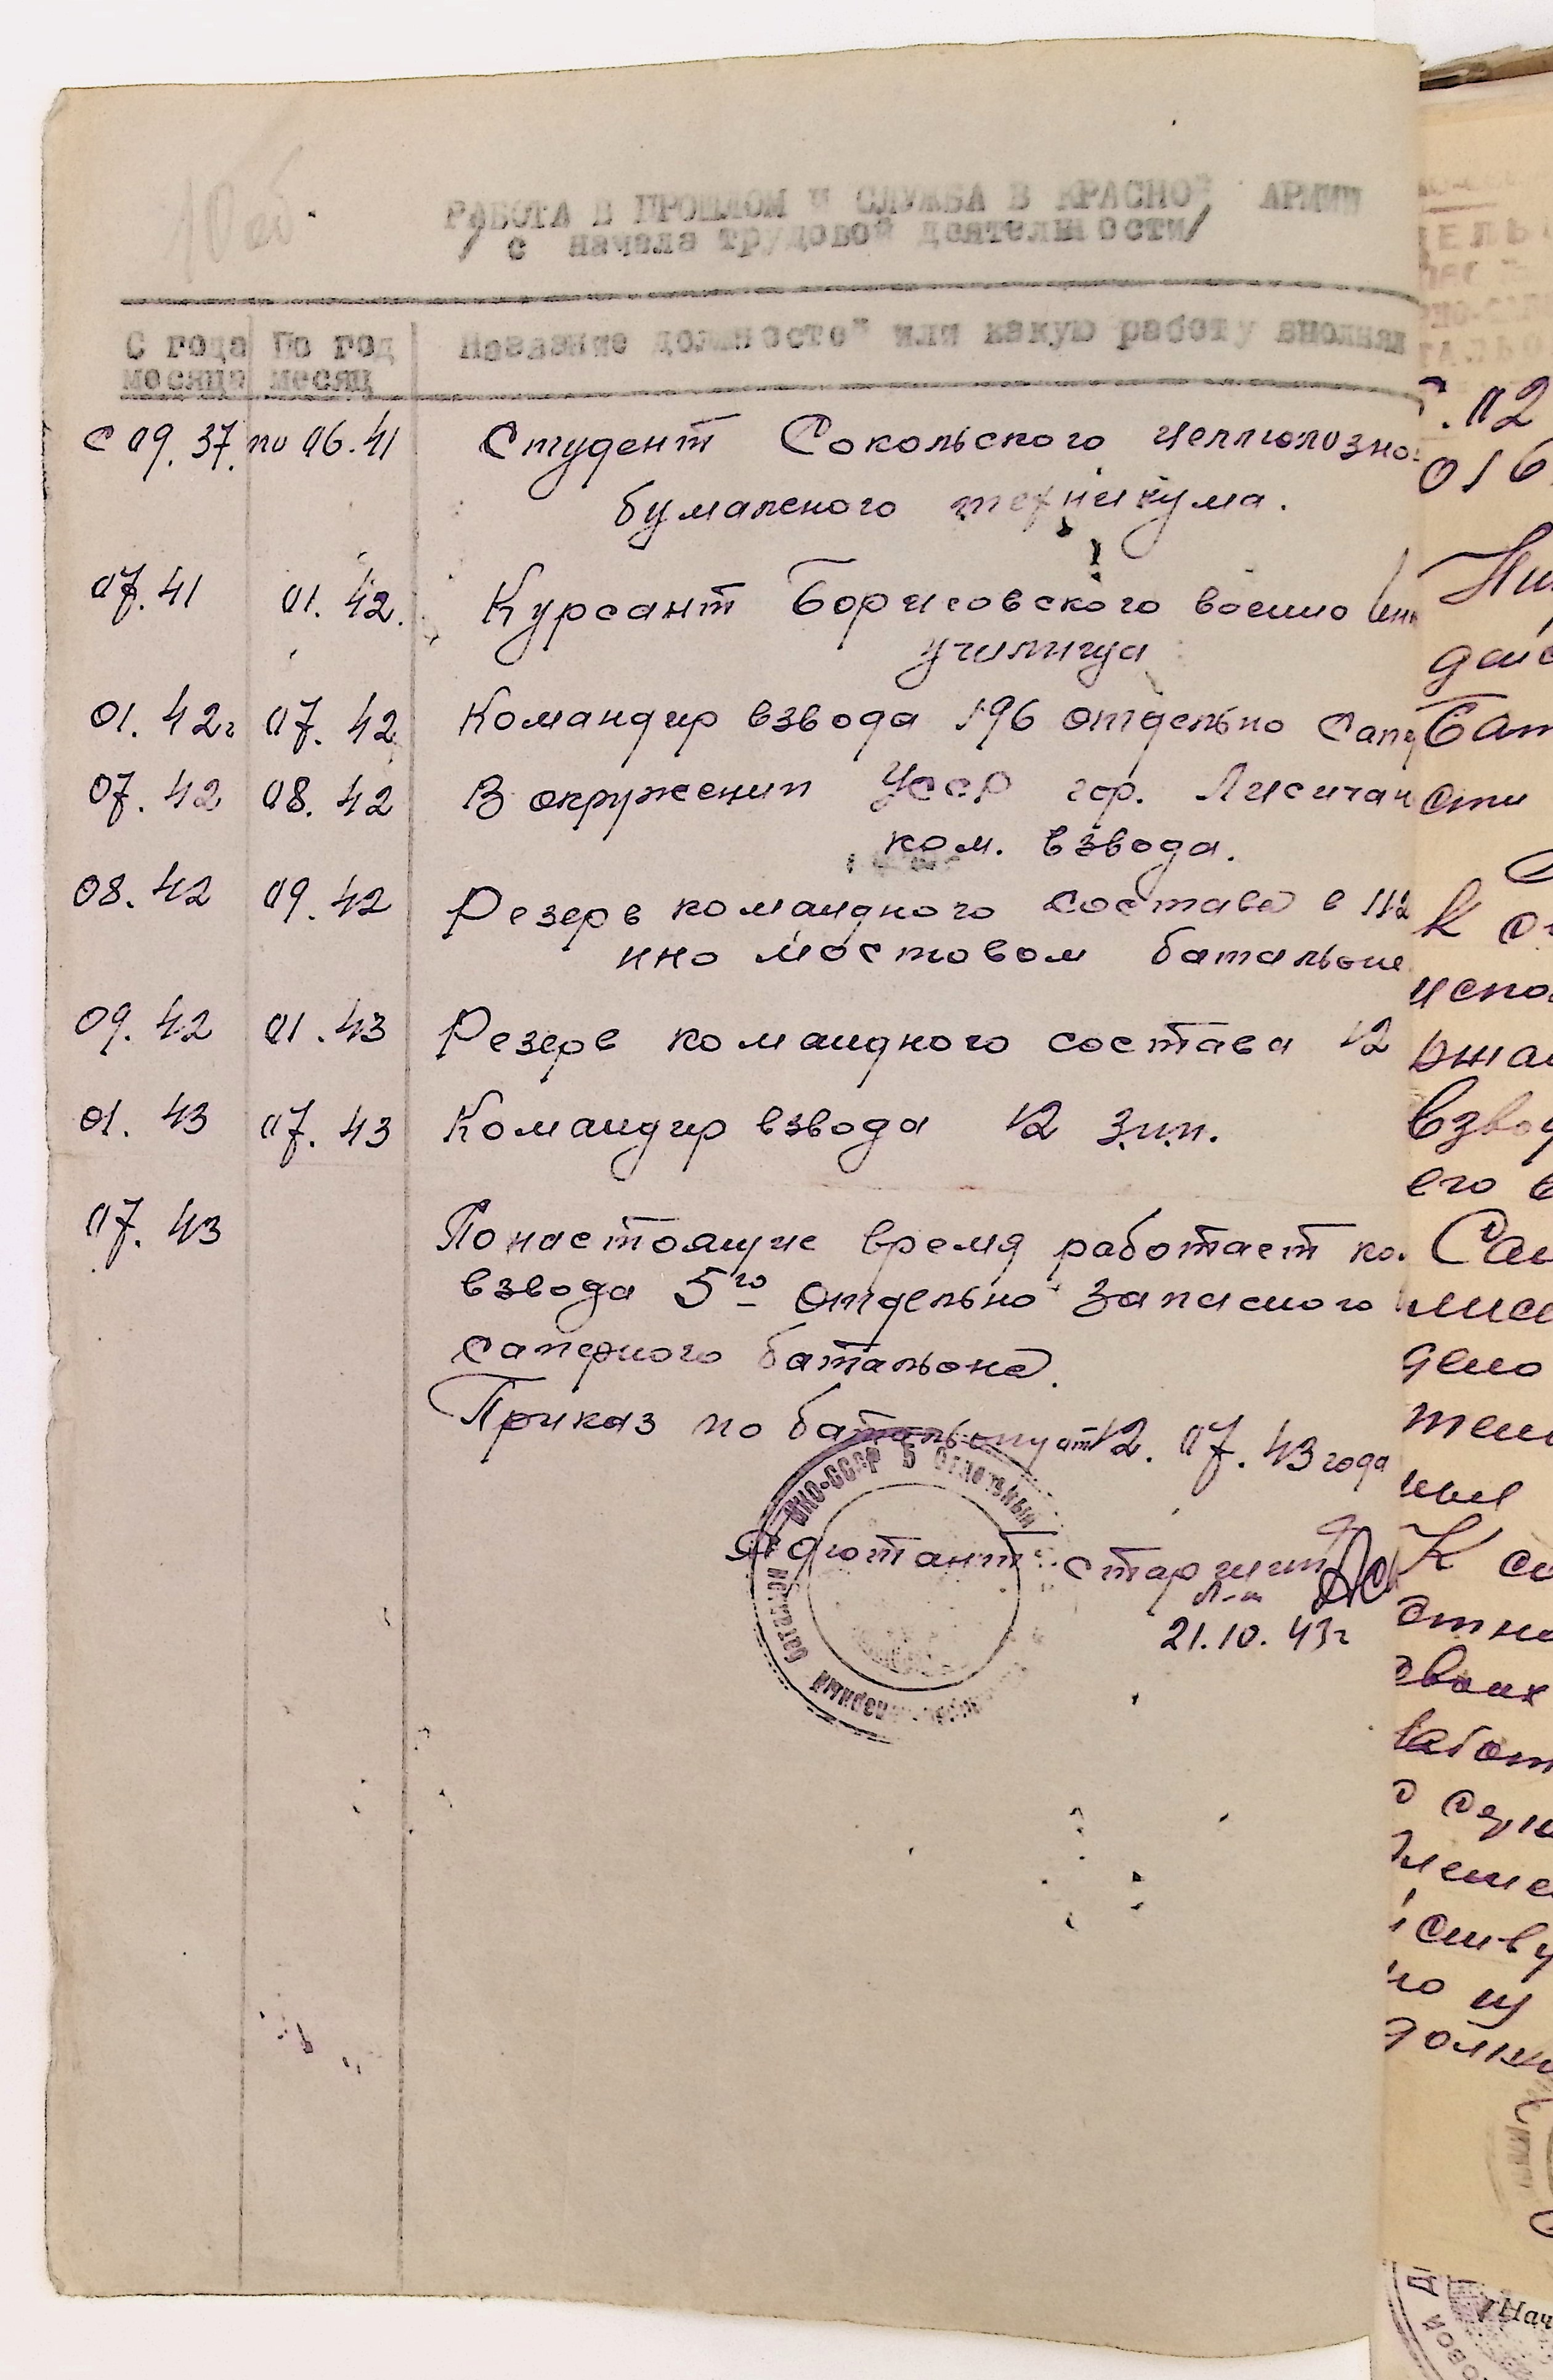 РАБОТА В ПРОШЛОМ И СЛУЖБА В КРАСНОЙ АРМИИ
/ с начала трудовой деятельности/
С года По год Название должностей или какую работу вполнял
месяца месяц
с 09.37. по 06.41 Студент Сокольского целлюлозно-
бумажного техникума.
07.41 01.42. Курсант Борисовского военно инж
училища
01.42г 07.42 Командир взвода 196 отдельно Сапер
07.42 08.42 В окружении УССР гор. Лисичан
ком. взвода.
08.42 09.42 Резерв командного состава в 112
мостовом батальоне
09.42 01.43 Резерв командного состава 12
01.43 07.43 Командир взвода 12 з.и.п.
07.43 Понастоящие время работает ко.
взвода 5го отдельно запасного
саперного батальона.
Приказ по батальону от 12.07.43 года
НКО-СССР 5 Отдельный
батальон
Адютант старший
л-т
21.10.43г
.02
016
дей
Бат
сти
К
испо
взвод
его в
Сап
дело
К
своих
работ